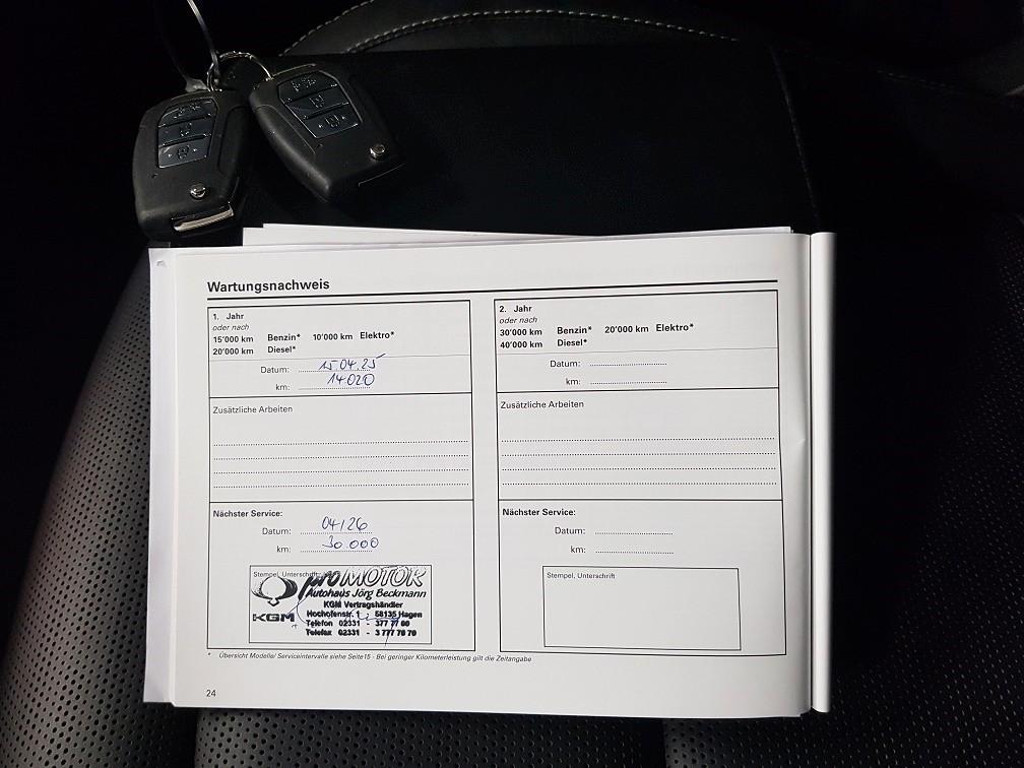 Wartungsnachweis
1. Jahr
oder nach
15'000 km Benzin* 10'000 km Elektro*
20'000 km Diesel*
Datum: 15.04.25
km: 14020
Zusätzliche Arbeiten
Nächster Service:
Datum: 04/26
km: 30.000
Stempel, Unterschrift
proMOTOR
Autohaus Jörg Beckmann
KGM Vertragshändler
KGM
Hochofenstr. 1 58135 Hagen
Telefon 02331 - 377 77 80
Telefax 02331 - 3 777 78 79
2. Jahr
oder nach
30'000 km Benzin* 20'000 km Elektro*
40'000 km Diesel*
Datum:
km:
Zusätzliche Arbeiten
Nächster Service:
Datum:
km:
Stempel, Unterschrift
* Übersicht Modelle/ Serviceintervalle siehe Seite15 - Bei geringer Kilometerleistung gilt die Zeitangabe
24